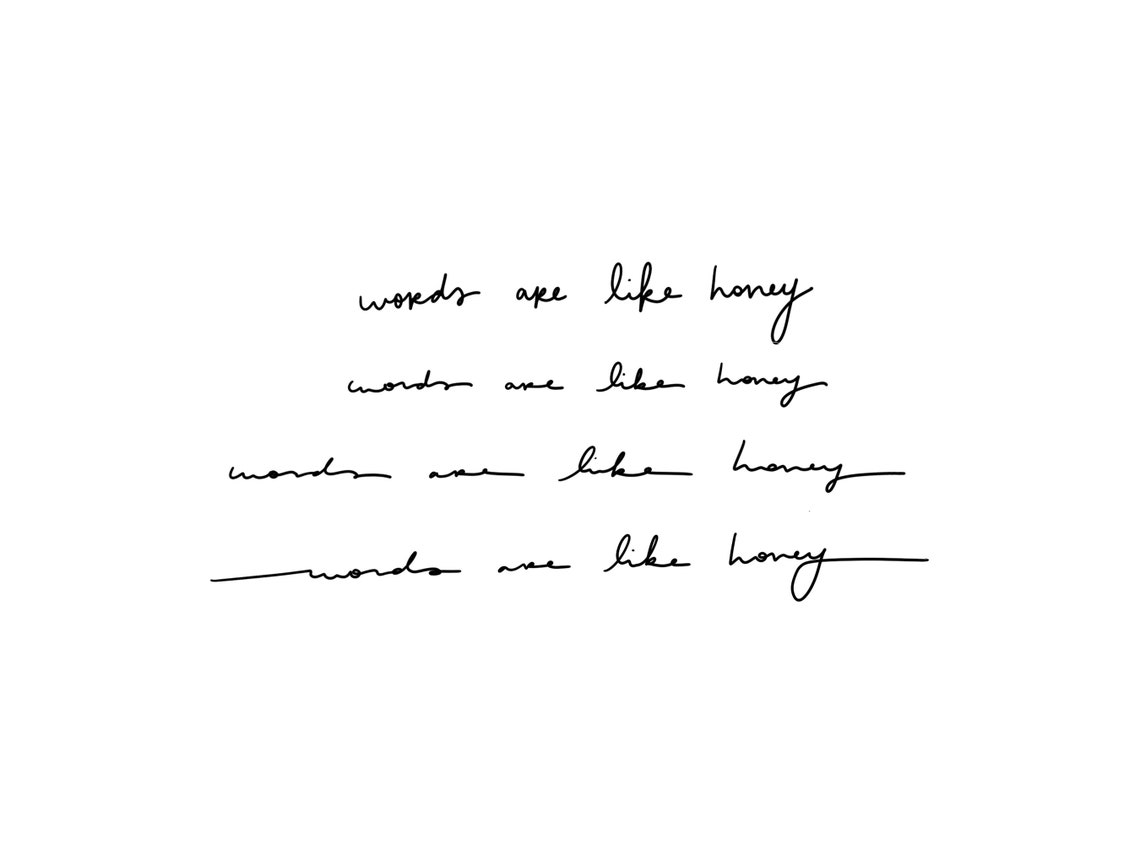 words are like honey
words are like honey
words are like honey
words are like honey